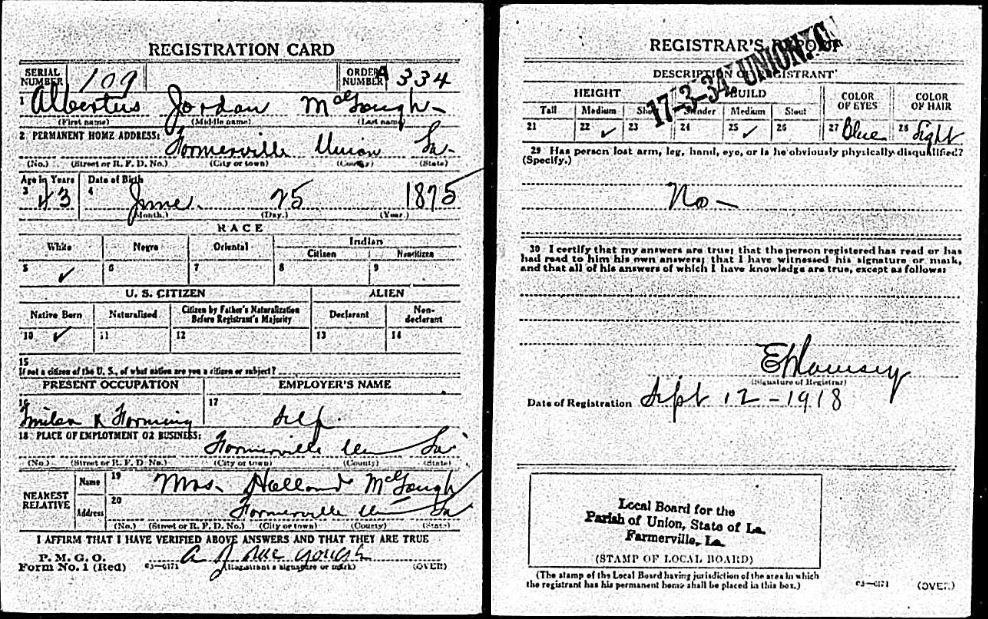 REGISTRATION CARD
SERIAL NUMBER 109 ORDER NUMBER A 334
1 Albertus Jordan McGough
(First name) (Middle name) (Last name)
2 PERMANENT HOME ADDRESS:
Farmerville Union La
(No.) (Street or R. F. D. No.) (City or town) (County) (State)
Age in Years Date of Birth
3 43 4 June 25 1875
(Month.) (Day.) (Year.)
RACE
White Negro Oriental Indian
Citizen Noncitizen
5 ✓ 6 7 8 9
U. S. CITIZEN ALIEN
Native Born Naturalized Citizen by Father's Naturalization Before Registrant's Majority Declarant Non-declarant
10 ✓ 11 12 13 14
15
If not a citizen of the U. S., of what nation are you a citizen or subject?
PRESENT OCCUPATION EMPLOYER'S NAME
16 & Farming 17 Self
18 PLACE OF EMPLOYMENT OR BUSINESS:
Farmerville Un La
(No.) (Street or R. F. D. No.) (City or town) (County) (State)
NEAREST RELATIVE Name 19 Mrs. Holland McGough
Address 20 Farmerville Un La
(No.) (Street or R. F. D. No.) (City or town) (County) (State)
I AFFIRM THAT I HAVE VERIFIED ABOVE ANSWERS AND THAT THEY ARE TRUE
P. M. G. O.
Form No. 1 (Red) 03—6171 A J McGough
(Registrant's signature or mark) (OVER)
REGISTRAR'S REPORT
17-3-34 UNION
DESCRIPTION OF REGISTRANT
HEIGHT BUILD COLOR OF EYES COLOR OF HAIR
Tall Medium Short Slender Medium Stout
21 22 ✓ 23 24 25 ✓ 26 27 Blue 28 Light
29 Has person lost arm, leg, hand, eye, or is he obviously physically disqualified?
(Specify.)
No—
30 I certify that my answers are true; that the person registered has read or has
had read to him his own answers; that I have witnessed his signature or mark,
and that all of his answers of which I have knowledge are true, except as follows:
E Ramsey
(Signature of Registrar)
Date of Registration Sept 12-1918
Local Board for the
Parish of Union, State of La.
Farmerville, La.
(STAMP OF LOCAL BOARD)
(The stamp of the Local Board having jurisdiction of the area in which
the registrant has his permanent home shall be placed in this box.)
03—6171 (OVER)